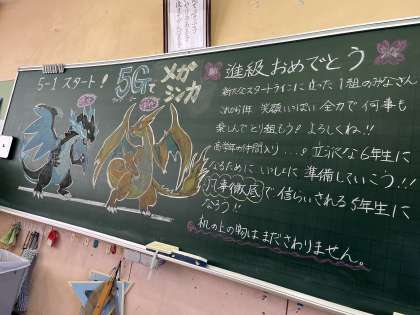 5-1 スタート!
5Gで
メガ
シンカ
進級おめでとう
新たなスタートラインに立った1組のみなさん
これから1年 笑顔いっぱい 全力で何事も
楽しんでとり組もう♪ よろしくね!!
高学年の仲間入り...。立派な6年生に
なるためにいっしょに準備していこう!!
凡事徹底で信らいされる5年生に
なろう!!
机の上の物はまださわりません。